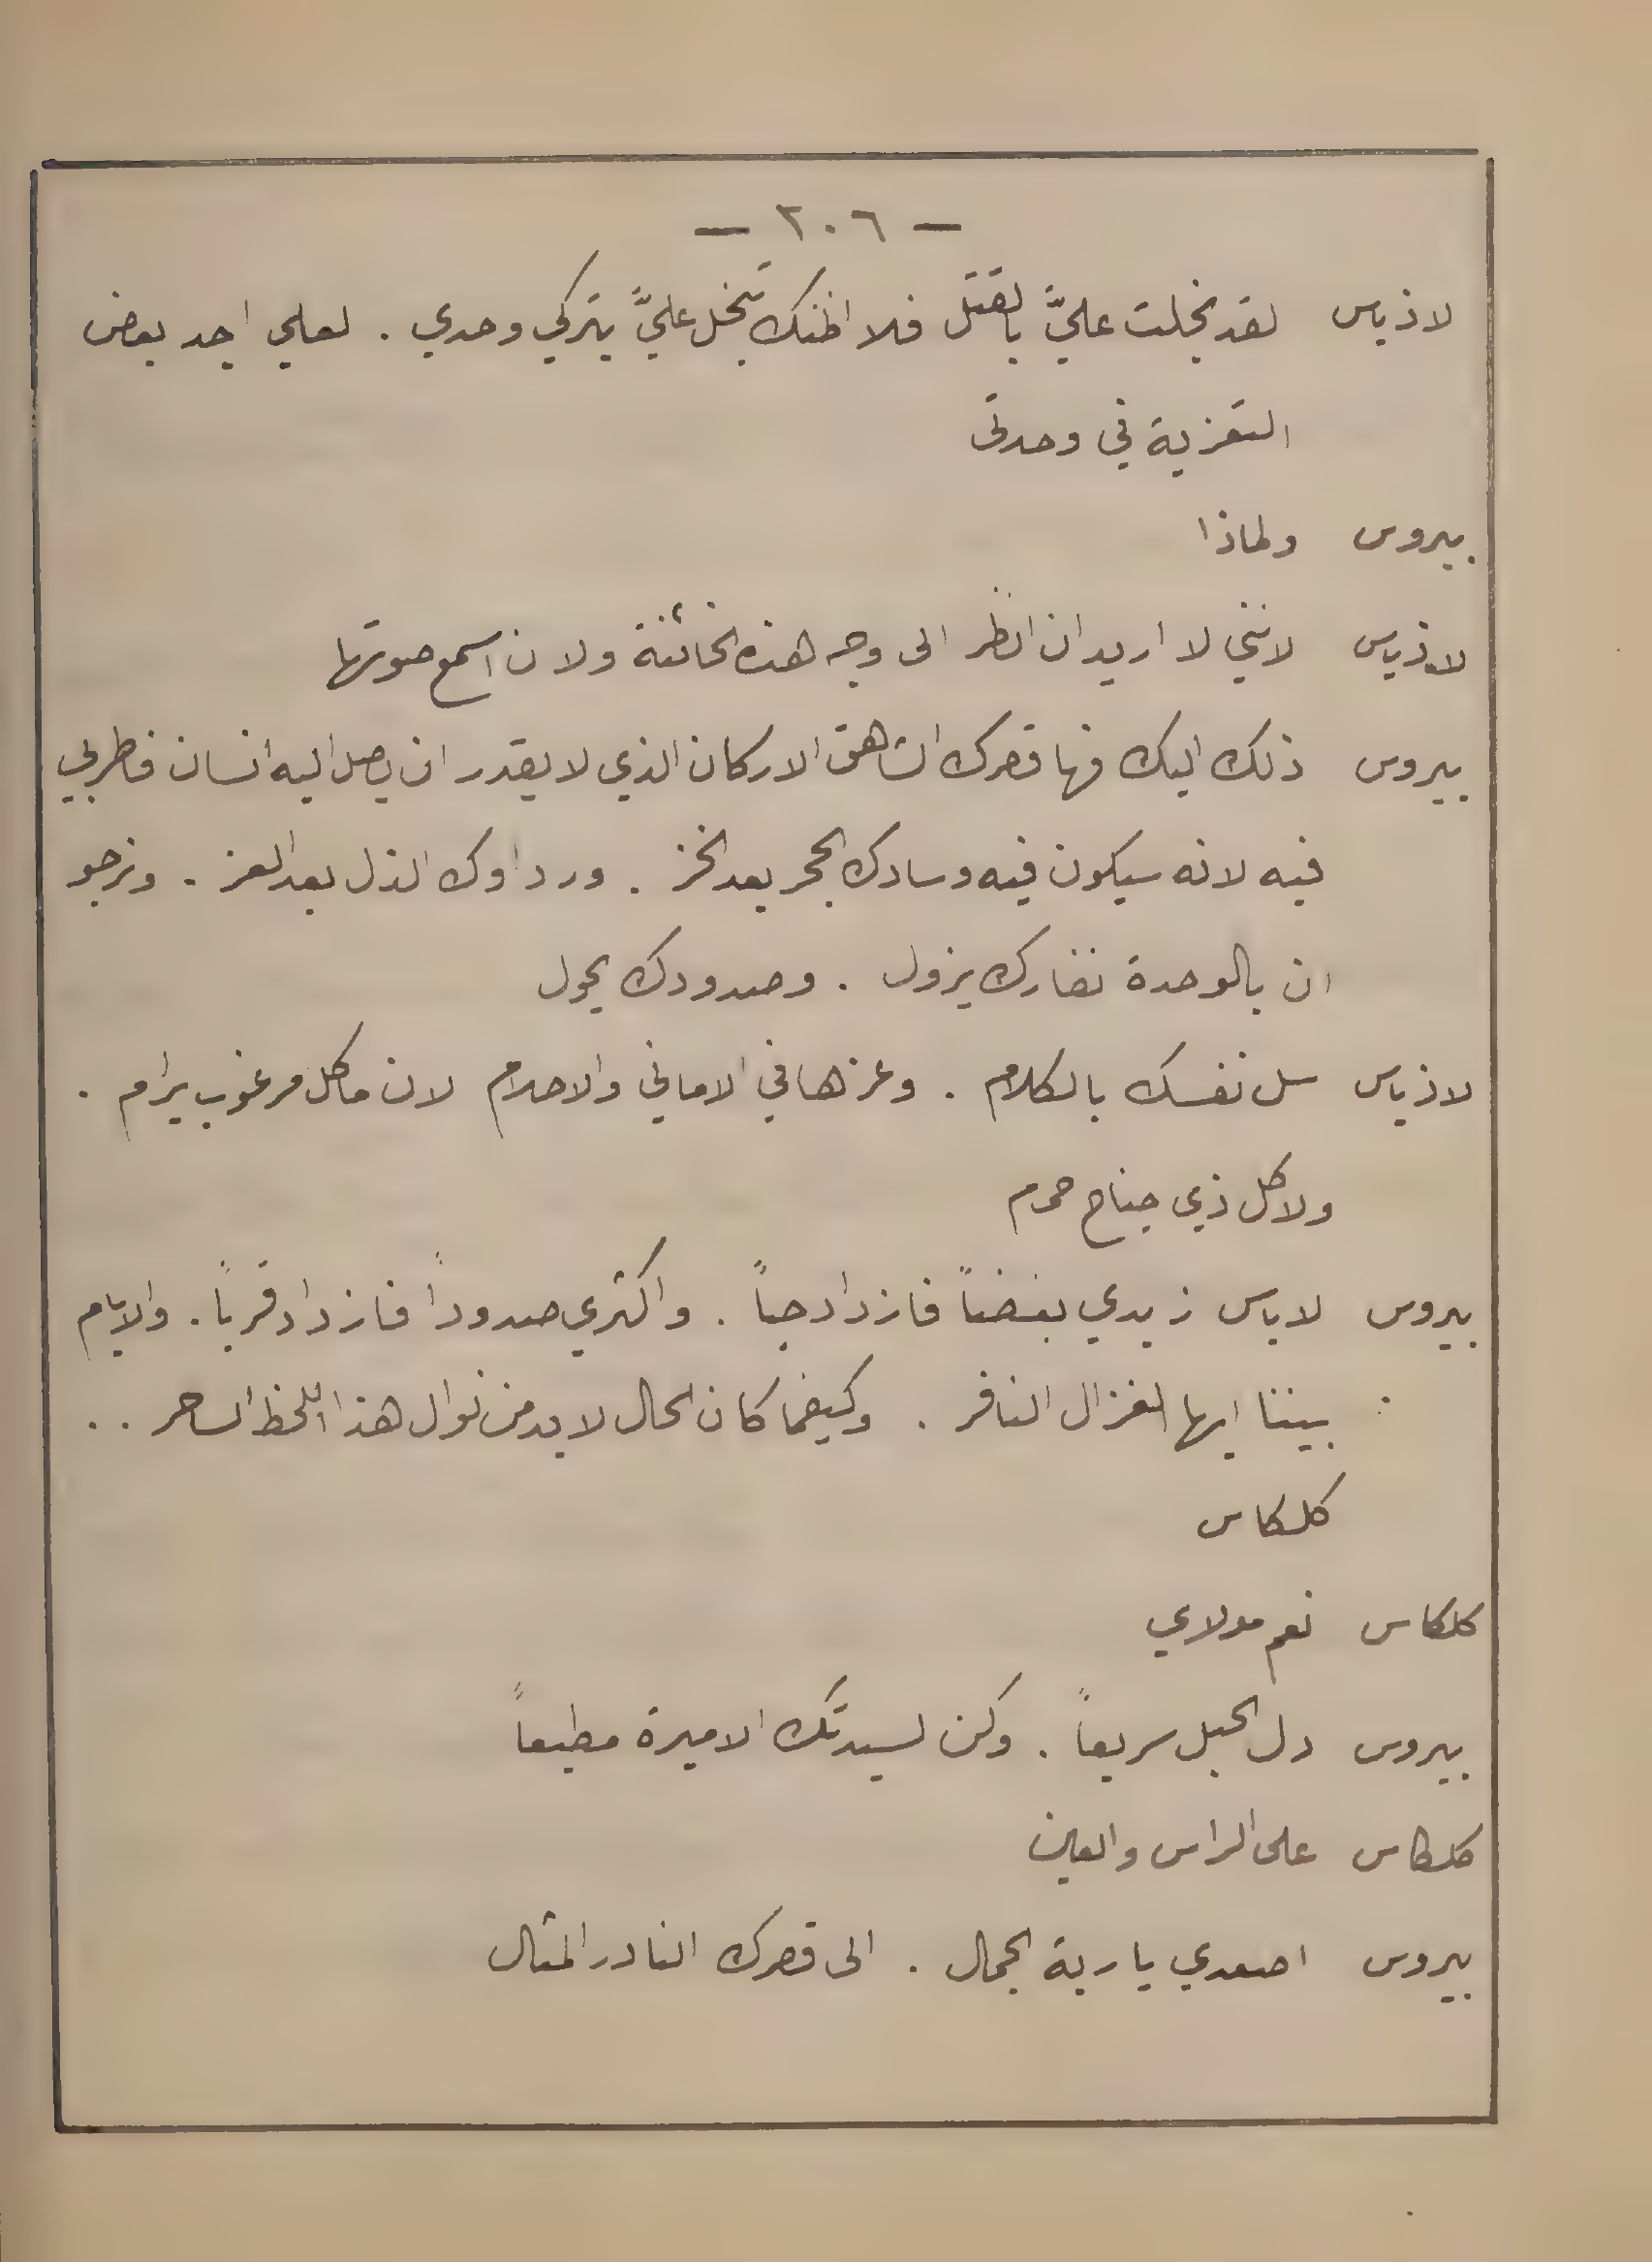 — ٢٠٦ —
لاذياس لقد بخلت عليَّ بالقتل فلا اظنك تبخل عليَّ بتركي وحدي . لعلي اجد بعض
التعزية في وحدتي
بيروس ولماذا
لاذياس لانني لا اريد ان انظر الى وجه هذه الخائنة ولا ان اسمع صوتها
بيروس ذلك اليك فها قصرك الشاهق الاركان الذي لا يقدر ان يصل اليه انسان فاطربي
فيه لانه سيكون فيه وسادك الحجر بعد الخز . ورداوك الذل بعد العز . ونرجو
ان بالوحدة نفارك يزول . وصدودك يحول
لاذياس سل نفسك بالكلام . وعزها في الاماني والاحلام لان ما كل مرغوب يرام .
ولا كل ذي جناح حمام
بيروس لاباس زيدي بغضاً فازداد حباً . واكثري صدوداً فازداد قرباً . والايام
بيننا ايها الغزال النافر . وكيفما كان الحال لا بد من نوال هذا اللحظ الساحر . .
كلكاس
كلكاس نعم مولاي
بيروس دل الحبل سريعاً . وكن لسيدتك الاميرة مطيعاً
كلكاس على الراس والعين
بيروس اصعدي يا ربة الجمال . الى قصرك النادر المثال